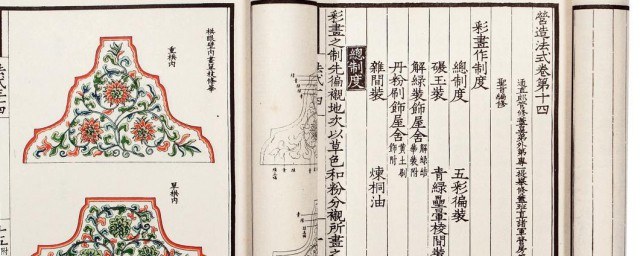 營造法式卷第十四
通直郎管修蓋皇弟外第專一提舉修蓋班直諸軍營房
聖旨編修
彩畫作制度
總制度 五彩徧裝
碾玉裝 青綠疊暈棱間裝
解綠裝飾屋舍 解綠結華裝附
丹粉刷飾屋舍 黃土刷飾附
雜間裝 煉桐油
總制度
彩畫之制先徧襯地次以草色和粉分襯所畫之
重栱内
單栱内